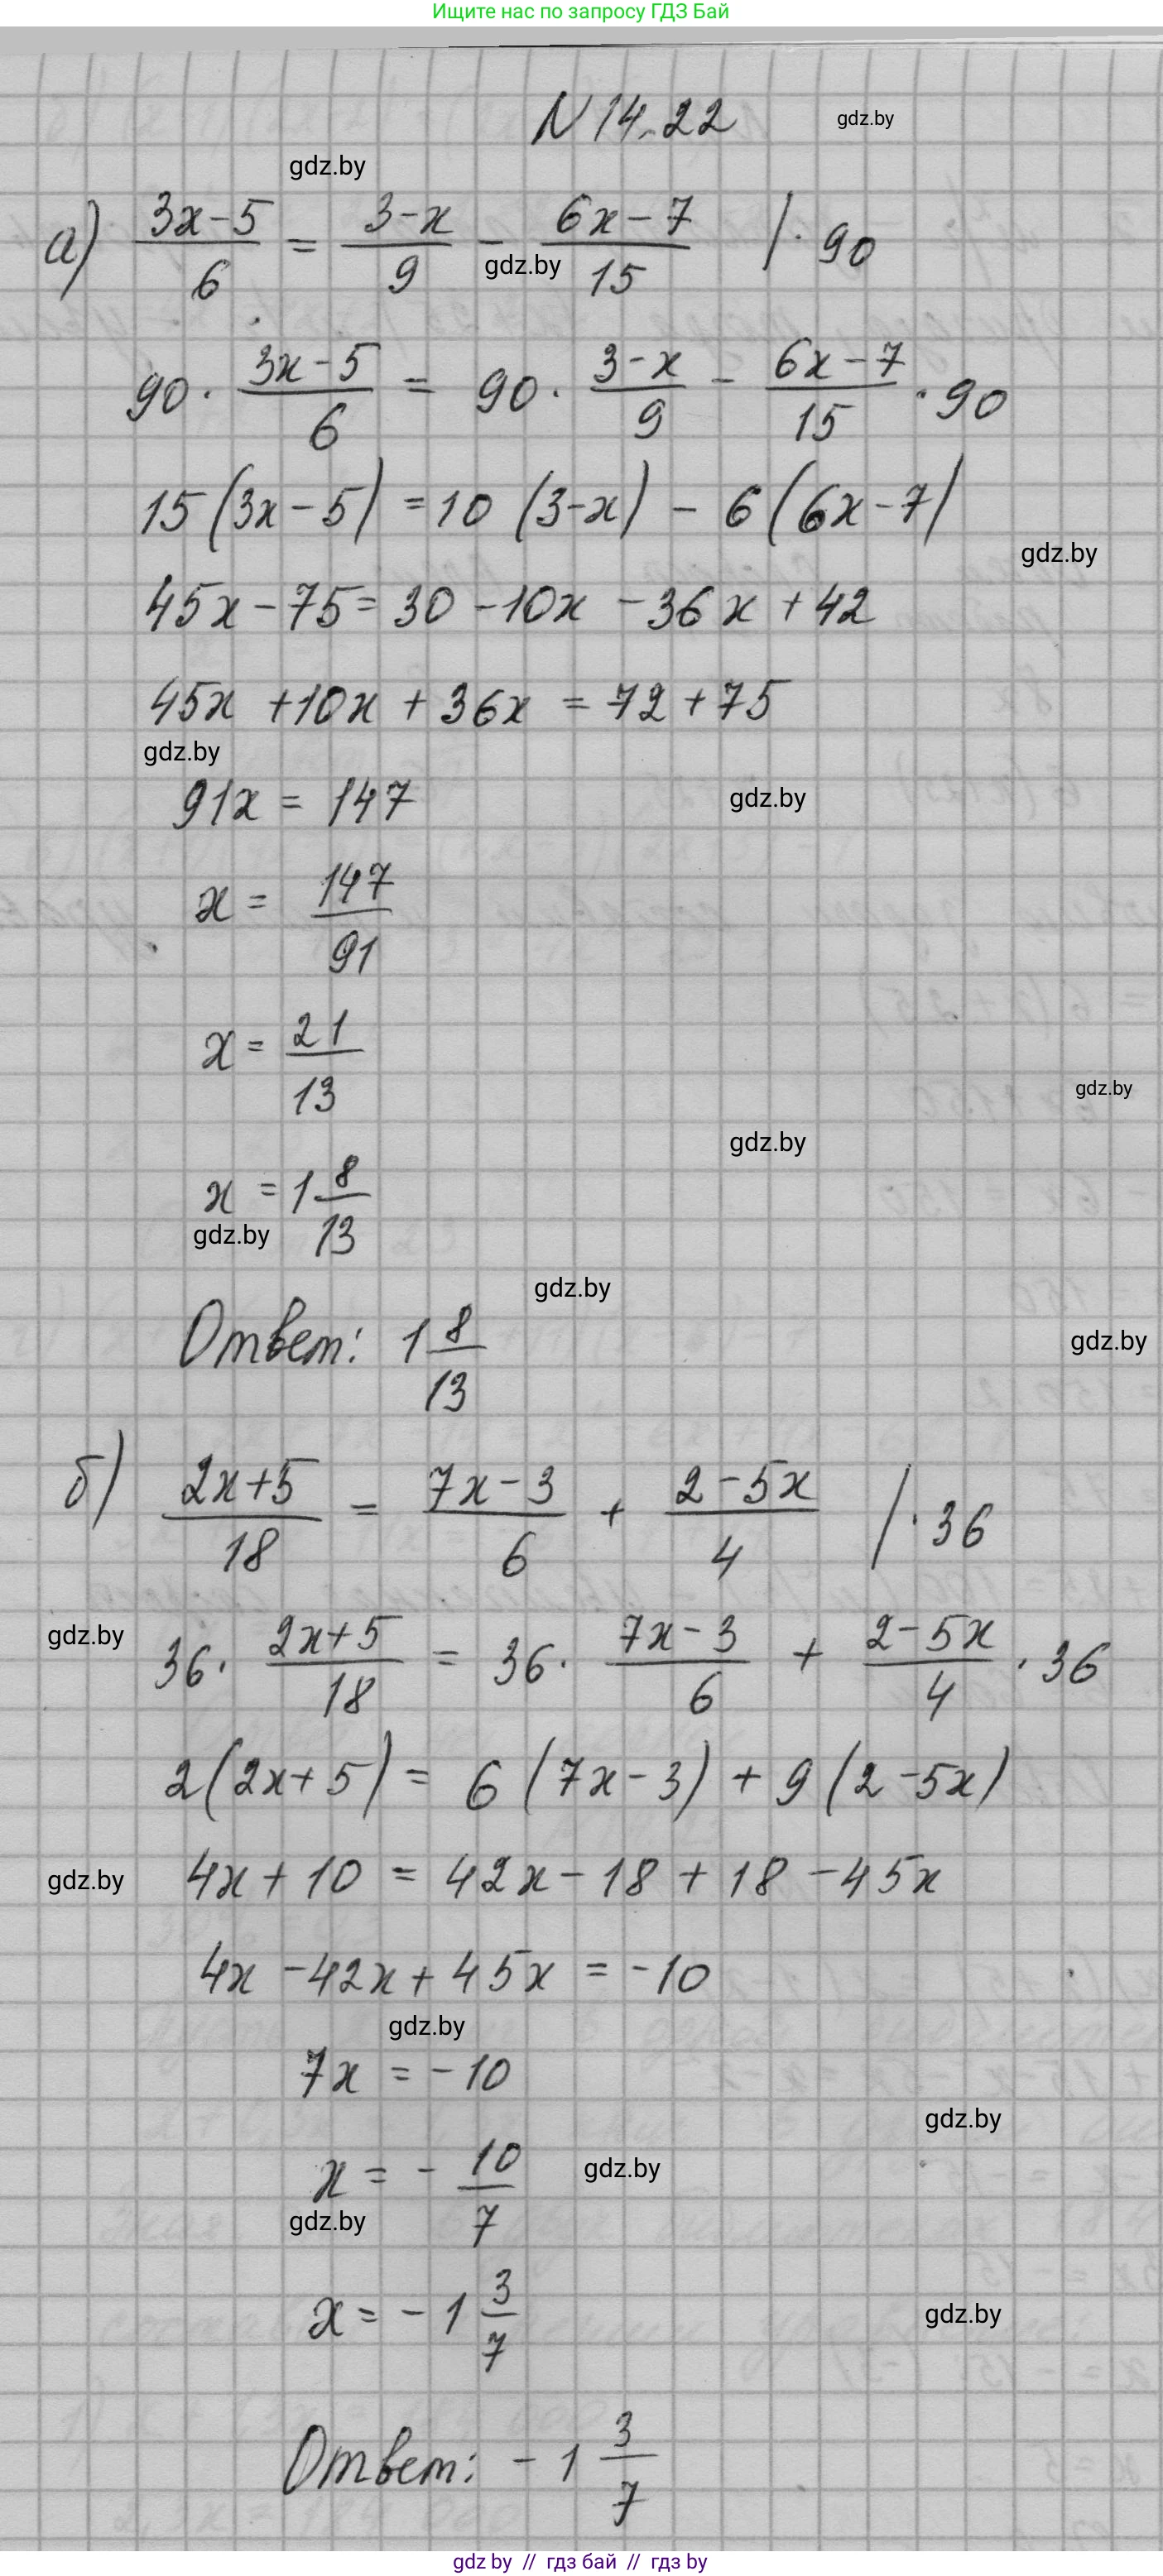 Ищите нас по запросу ГДЗ Бай
N 14.22 gdz.by
gdz.by
а) (3x-5)/6 = (3-x)/9 - (6x-7)/15 | · 90
gdz.by
90 · (3x-5)/6 = 90 · (3-x)/9 - (6x-7)/15 · 90
15(3x-5) = 10 (3-x) - 6(6x-7)
gdz.by
45x-75 = 30-10x-36x+42
45x+10x+36x = 72+75
gdz.by
91x = 147 gdz.by
x = 147/91
x = 21/13
gdz.by
gdz.by
x = 1 8/13
gdz.by
gdz.by
Ответ: 1 8/13 gdz.by
б) (2x+5)/18 = (7x-3)/6 + (2-5x)/4 | · 36
gdz.by
36 · (2x+5)/18 = 36 · (7x-3)/6 + (2-5x)/4 · 36
2(2x+5) = 6(7x-3) + 9(2-5x)
gdz.by 4x+10 = 42x-18+18-45x
4x-42x+45x = -10
gdz.by
7x = -10
gdz.by
x = - 10/7 gdz.by
gdz.by
x = -1 3/7 gdz.by
Ответ: -1 3/7
gdz by // гдз бай // gdz by